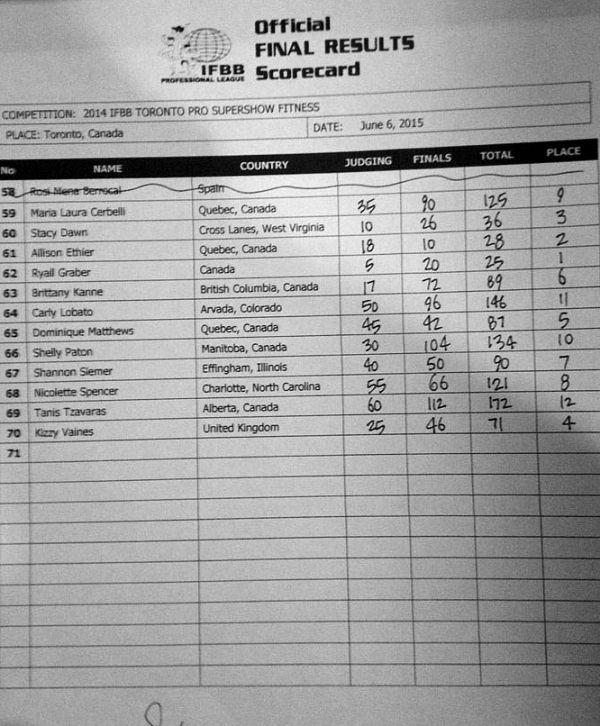 Official
FINAL RESULTS
Scorecard
IFBB
PROFESSIONAL LEAGUE
COMPETITION: 2014 IFBB TORONTO PRO SUPERSHOW FITNESS
PLACE: Toronto, Canada DATE: June 6, 2015
No NAME COUNTRY JUDGING FINALS TOTAL PLACE
58 Rosi Mena Berrocal Spain
59 Maria Laura Cerbelli Quebec, Canada 35 90 125 9
60 Stacy Dawn Cross Lanes, West Virginia 10 26 36 3
61 Allison Ethier Quebec, Canada 18 10 28 2
62 Ryall Graber Canada 5 20 25 1
63 Brittany Kanne British Columbia, Canada 17 72 89 6
64 Carly Lobato Arvada, Colorado 50 96 146 11
65 Dominique Matthews Quebec, Canada 45 42 87 5
66 Shelly Paton Manitoba, Canada 30 104 134 10
67 Shannon Siemer Effingham, Illinois 40 50 90 7
68 Nicolette Spencer Charlotte, North Carolina 55 66 121 8
69 Tanis Tzavaras Alberta, Canada 60 112 172 12
70 Kizzy Vaines United Kingdom 25 46 71 4
71